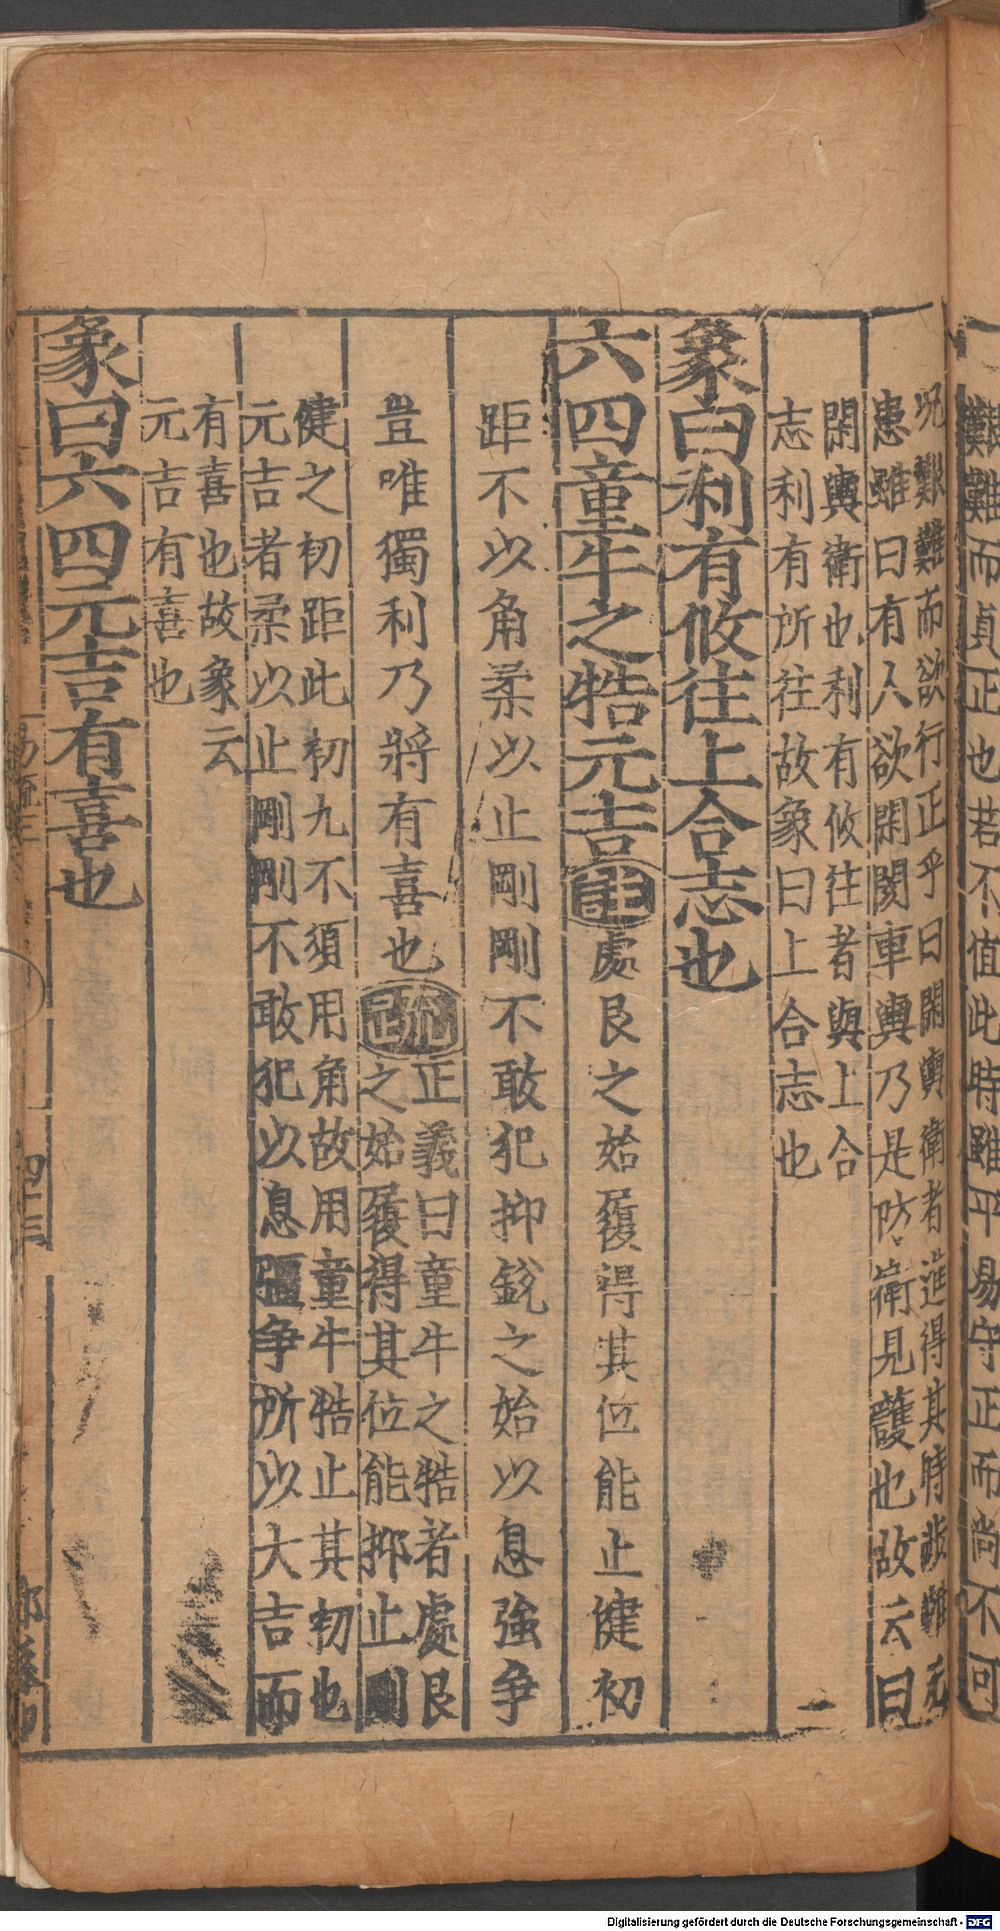 艱難而貞正也若不值此時雖平易守正而尚不可
況艱難而欲行正乎曰閑輿衛者進得其時涉難无
患雖曰有人欲閑閡車輿乃是防衛見護也故云曰
閑輿衛也利有攸往者與上合
志利有所往故象曰上合志也
象曰利有攸往上合志也
六四童牛之牿元吉註處艮之始履得其位能止健初
距不以角柔以止剛剛不敢犯抑銳之始以息強爭
豈唯獨利乃將有喜也疏
正義曰童牛之牿者處艮
之始履得其位能抑止剛
健之初距此初九不須用角故用童牛牿止其初也
元吉者柔以止剛剛不敢犯以息彊爭所以大吉而
有喜也故象云
元吉有喜也
象曰六四元吉有喜也
易疏三
四十三
Digitalisierung gefördert durch die Deutsche Forschungsgemeinschaft - DFG